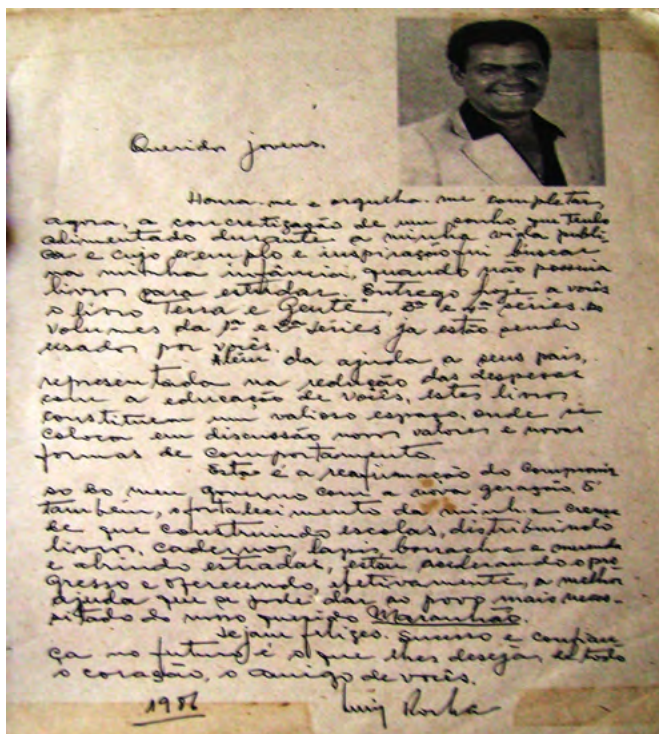 Queridos jovens.
Honra-me e orgulha-me completar,
agora, a concretização de um sonho que tenho
alimentado durante a minha vida públi-
ca e cujo exemplo e inspiração fui buscar
na minha infância, quando não possuia
livros para estudar. Entrego hoje a vocês
o livro "Terra e Gente", 3ª e 4ª séries. os
volumes da 1ª e 2ª séries já estão sendo
usados por vocês.
Além da ajuda a seus pais,
representada na redução das despesas
com a educação de vocês, estes livros
constituem um valioso espaço, onde se
coloca em discussão novos valores e novas
formas de comportamento.
Esta é a reafirmação do compromis
so do meu governo com a nova geração. É
também, o fortalecimento da minha crença
de que construindo escolas, distribuindo
livros, cadernos, lapis, borracha e merenda
e abrindo estradas, estou acelerando o pro
gresso e oferecendo, efetivamente, a melhor
ajuda que se pode dar ao povo mais neces-
sitado do nosso querido Maranhão.
Sejam felizes. Sucesso e confian-
ça no futuro é o que lhes deseja, de todo
o coração, o amigo de vocês.
1986 Luiz Rocha